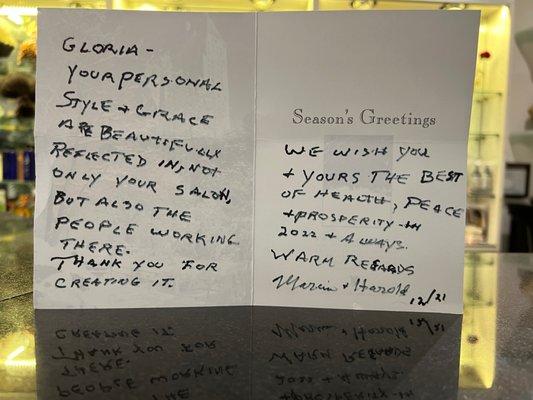 GLORIA -
YOUR PERSONAL
STYLE + GRACE
ARE BEAUTIFULLY
REFLECTED IN, NOT
ONLY YOUR SALON,
BUT ALSO THE
PEOPLE WORKING
THERE.
THANK YOU FOR
CREATING IT.
Season's Greetings
WE WISH YOU
+ YOURS THE BEST
OF HEALTH, PEACE
+ PROSPERITY - IN
2022 + ALWAYS.
WARM REGARDS
+ Harold
12/21